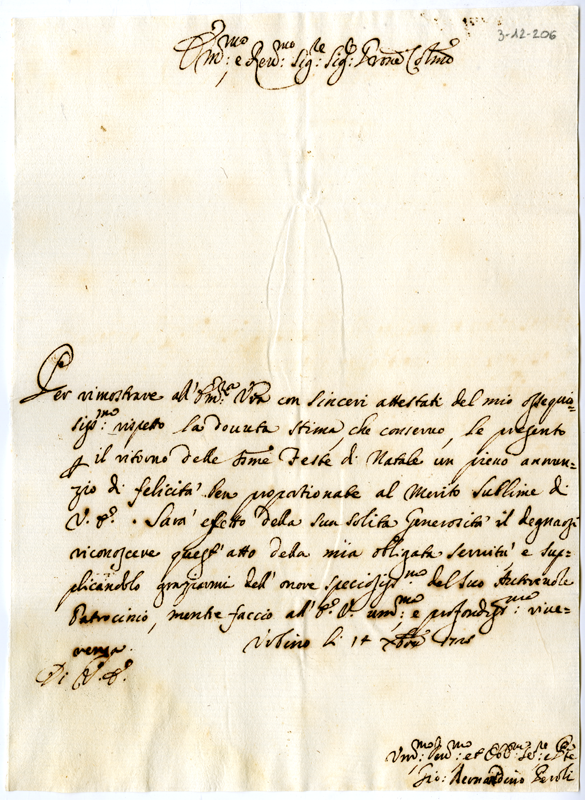 3-12-206
Em.mo: e Rev.mo: Sig.re: Sig.re: Prone Col.mo
Per rimostrare all' Em.za: Vra con sinceri attestati del mio ossequio=
sis.mo: rispetto la dovuta stima, che conservo, le presento
il ritorno delle Feste di Natale un pieno annun=
zio di felicità ben proportionate al Merito sublime di
V. E. . Sarà effetto della sua solita Generosità il degnarsi
riconoscere quest' atto della mia obligata servitù e sup=
plicandolo graziarmi dell' onore speciosis.mo del suo Autorevole
Patrocinio, mentre faccio all' E. V. um.mo: e profondis.ma: rive=
renza. Urbino li Xbre
Di V. E.
Um.mo: et Ob.mo
Gio: Bernardino Peroli